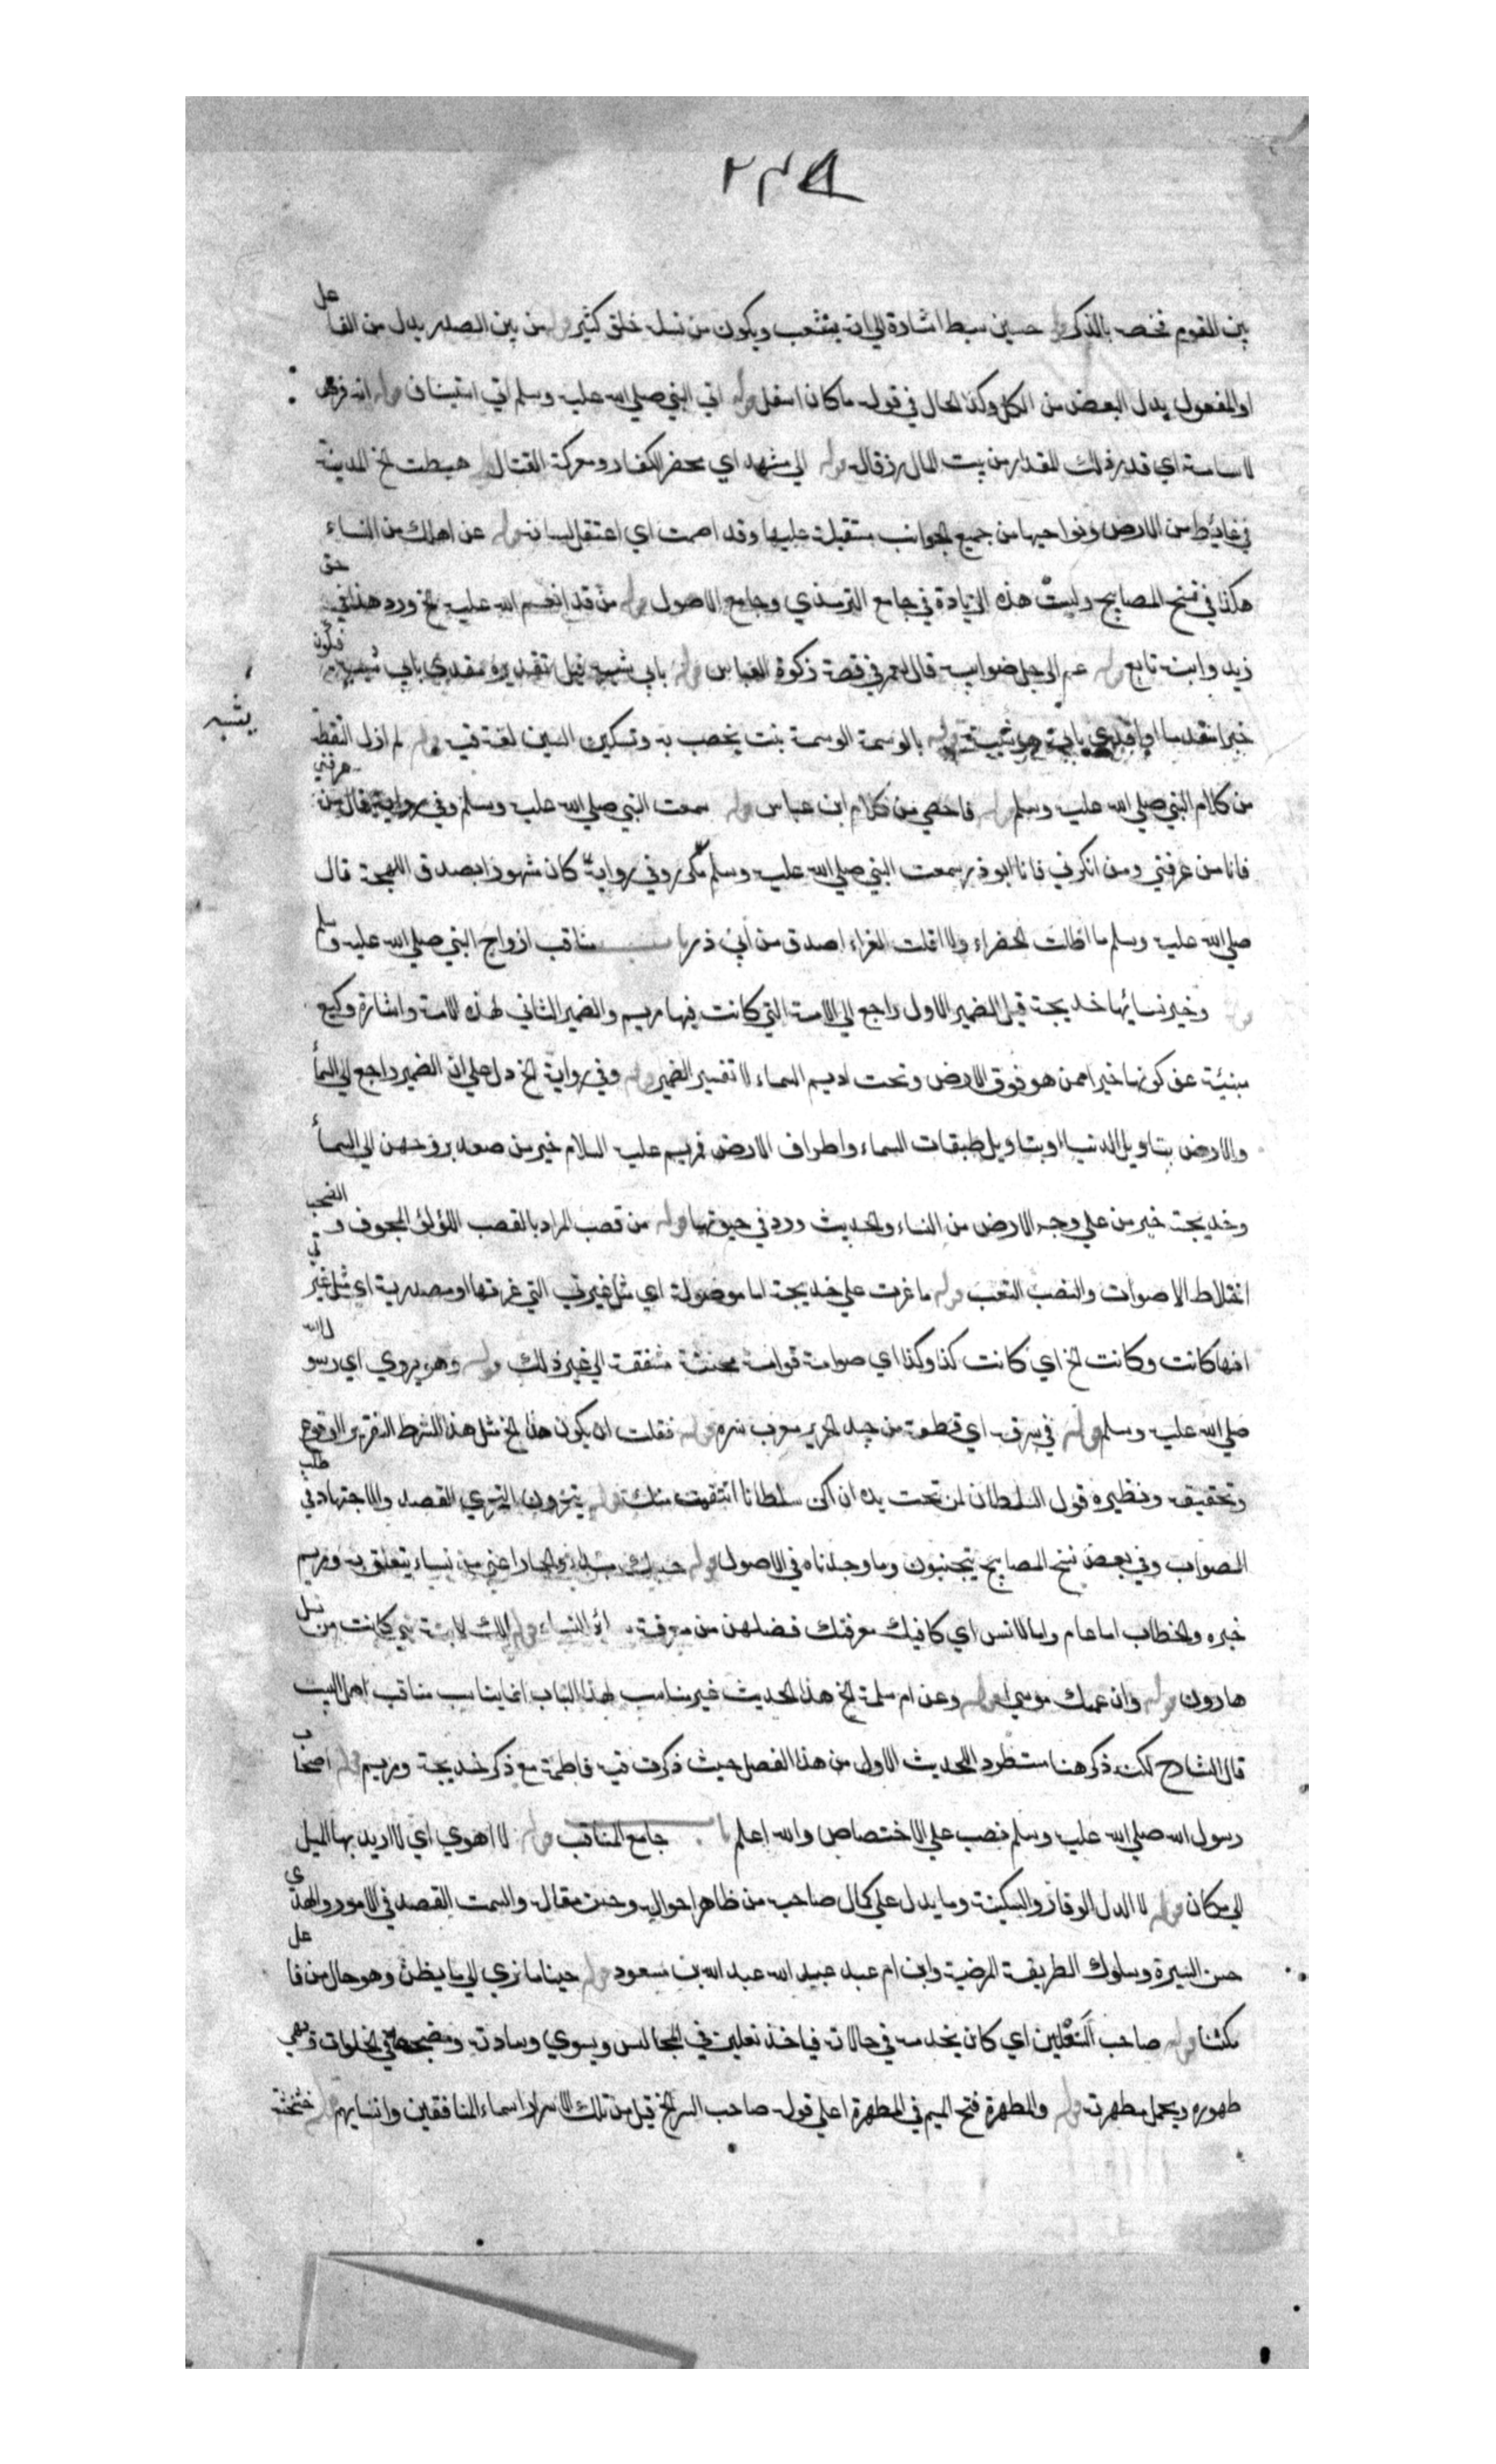 بين القوم فخصه بالذكر قوله حسين سبط اشارة الي انه يتشعب ويكون من نسله خلق كثير قوله من بين الصدر بدل من الفاعل
او المفعول بدل البعض من الكل وكذا الحال في قوله ما كان اسفل قوله اتي النبي صلي الله عليه وسلم اتي استيناف قوله انه فرض
لاسامة اي قدر ذلك المقدار من بيت المال رزقا له قوله الي مشهد اي محضر الكفار ومعركة القتال قوله هبطت الخ المدينة
في غائط من الارض ونواحيها من جميع الجوانب مستقبلة عليها وقد اصمت اي اعتقل لسانه قوله عن اهلك من النساء
هكذا في نسخ المصابيح وليست هذه الزيادة في جامع الترمذي وجامع الاصول قوله من قد انعم الله عليه الخ ورد هذا في حق
زيد وابنه تابع قوله عم الرجل صنو ابيه قاله لعمر في قصة زكوة العباس قوله بابي شبيه قيل تقديره مفدي بابي شبيه فيكون
خبرا بعد قوله بالوسمة الوسمة نبت يخضب به وتسكين السين لغة فيه قوله لم ازل التقط
يشبه
من كلام النبي صلي الله عليه وسلم قوله فاحصي من كلام ابن عباس قوله سمعت النبي صلي الله عليه وسلم وفي رواية قال من عرفني
فانا من عرفني ومن انكرني فانا ابو ذر سمعت النبي صلي الله عليه وسلم وفي رواية كان مشهورا بصدق اللهجة قال
صلي الله عليه وسلم ما اظلت الخضراء ولا اقلت الغبراء اصدق من ابي ذر باب مناقب ازواج النبي صلي الله عليه وسلم
قوله وخير نسائها خديجة قيل الضمير الاول راجع الي الامة التي كانت فيها مريم والضمير الثاني لهذه الامة واشارة وكيع
مبنية عن كونها خيرا ممن هو فوق الارض وتحت اديم السماء لا تفسير الضمير قوله وفي رواية الخ دل علي ان الضمير راجع الي السماء
والارض بتاويل الدنيا او بتاويل طبقات السماء واطراف الارض فمريم عليه السلام خير من صعد بروحهن الي السماء
وخديجة خير من علي وجه الارض من النساء والحديث ورد في حيوتها قوله من قصب المراد بالقصب اللؤلؤ المجوف والصخب
اختلاط الاصوات والنصب التعب قوله ما غرت علي خديجة اما موصولة اي مثل غيرتي التي غرتها او مصدرية اي مثل غيرتي
انها كانت وكانت الخ اي كانت كذا وكذا اي صوامة قوامة محسنة مشفقة الي غير ذلك قوله وهو يروي اي رسول الله
صلي الله عليه وسلم قوله في سرقة اي قطعة من جيد الحرير معرب سره قوله فقلت ان يكون هذا الخ مثل هذا الشرط لتقرير الوقوع
وتحقيقه ونظيره قول السلطان لمن تحت يده ان اكن سلطانا انتقمت منك قوله يتحرون التحري القصد والاجتهاد في طلب
الصواب وفي بعض نسخ المصابيح يتجنبون وما وجدناه في الاصول قوله حسبك مبتدا والجار اعني من نساء يتعلق به ومريم
خبره والخطاب اما عام واما لانس اي كافيك معرفتك فضلهن من معرفة سائر النساء قوله انك لابنة نبي كانت من نسل
هارون قوله وان عمك موسي قوله وعن ام سلمة الخ هذا الحديث غير مناسب لهذا الباب انما يناسب مناقب اهل البيت
قال الشارح لكنه ذكر هنا مستطردا للحديث الاول من هذا الفصل حيث ذكرت فيه فاطمة مع ذكر خديجة ومريم قوله اصحاب
رسول الله صلي الله عليه وسلم نصب علي الاختصاص والله اعلم باب جامع المناقب قوله لا اهوي اي لا اريد بها الميل
الي مكان قوله لا الدل الوقار والسكينة وما يدل علي كمال صاحبه من ظاهر احواله وحسن مقاله والسمت القصد في الامور والهدي
حسن السيرة وسلوك الطريقة المرضية وابن ام عبد عبيد الله عبد الله بن مسعود قوله حينا ما نري الي ما يظن وهو حال من فاعل
مكثنا قوله صاحب النعلين اي كان يخدمه في حالاته فياخذ نعليه في المجالس ويسوي وسادته ومضجعه في الخلوات ويهيي
طهوره ويحمل مطهرته قوله والمطهرة فتح الميم في المطهرة اعلي قوله صاحب السر الخ قيل من تلك الاسرار اسماء المنافقين وانسابهم قوله خشخشة